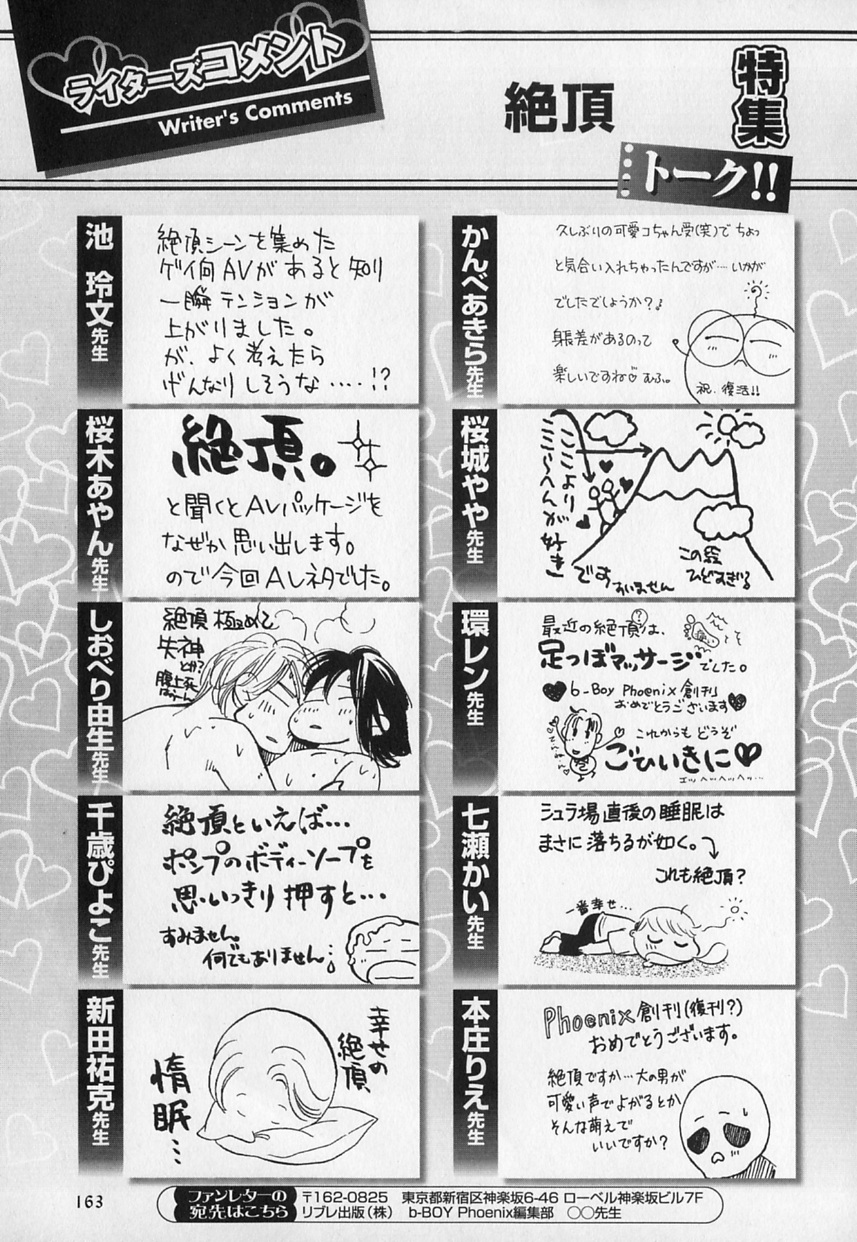 ライターズコメント
Writer's Comments
特集
絶頂
トーク!!
かんべあきら先生
久しぶりの可愛コちゃん受(笑)で ちょっ
と気合い入れちゃったんですが…いかが
でしたでしょうか?♪
身長差があるのって
楽しいですね♡ふふ。
祝・復活!!
池 玲文先生
絶頂シーンを集めた
ゲイ向AVがあると知り
一瞬テンションが
上がりました。
が、よく考えたら
げんなりしそうな‥‥!?
桜城やや先生
ここより
ここらへんが好き
です
すいません
この絵
ひどすぎる
桜木あやん先生
絶頂。
と聞くとAVパッケージを
なぜか思い出します。
ので今回AVネタでした。
環レン先生
最近の絶頂(?)は、
足つぼマッサージでした。
b-Boy Phoenix創刊
おめでとうございます
これからも どうぞ
ごひいきに♥
エヘヘヘヘッ…
しおべり由生先生
絶頂 極めて
失神
とか?
腹上死
七瀬かい先生
シュラ場直後の睡眠は
まさに落ちるが如く。
これも絶頂?
一番幸せ…
千歳ぴよこ先生
絶頂といえば…
ポンプのボディーソープを
思いっきり 押すと…
すみません
何でもありません
本庄りえ先生
Phoenix創刊(復刊?)
おめでとうございます。
絶頂ですか…大の男が
可愛い声でよがるとか
そんな萌えで
いいですか?
新田祐克先生
幸せの
絶頂
惰眠…
163
ファンレターの
宛先はこちら
〒162-0825 東京都新宿区神楽坂6-46 ローベル神楽坂ビル7F
リブレ出版(株) b-BOY Phoenix編集部 ○○先生